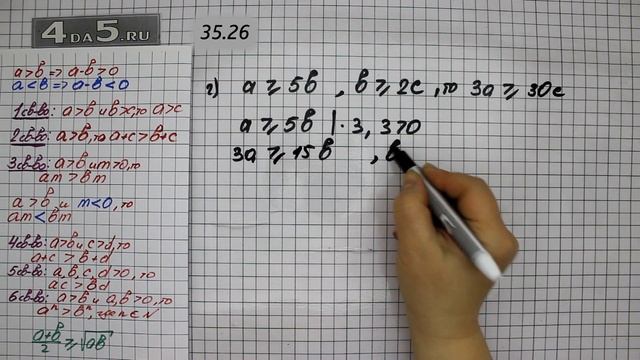 4DA5.RU
35.26
a>b => a-b>0
a<b => a-b<0
1св-во: a>b и b>c, то a>c
2св-во: a>b, то a+c>b+c
3св-во: a>b и m>0, то
am>bm
a>b и m<0, то
am<bm
4св-во: a>b и c>d, то
a+c>b+d
5св-во: a,b,c,d>0, то
ac>bd
6св-во: a>b и a,b>0, то
aⁿ>bⁿ, где n∈N
(a+b)/2 ≥ √ab
г) a ≥ 5b, b ≥ 2c, то 3a ≥ 30c
a ≥ 5b | · 3, 3>0
3a ≥ 15b , b